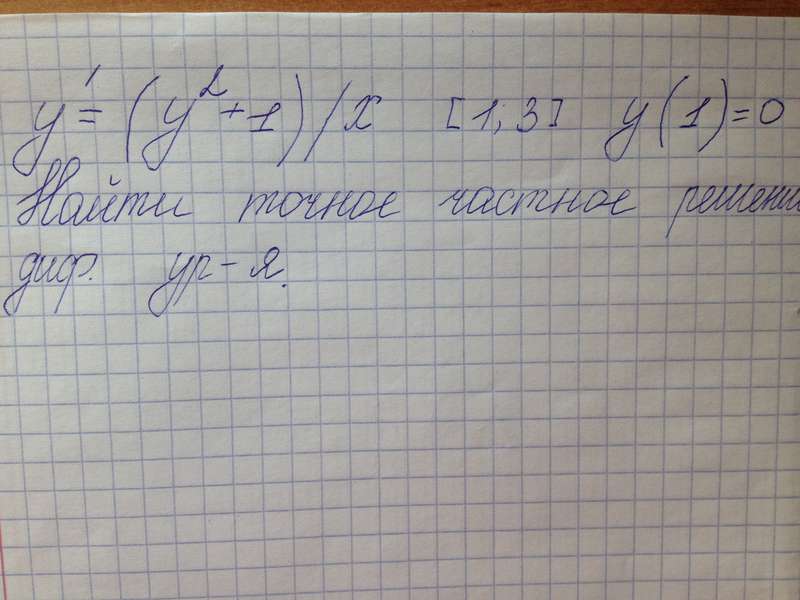 y' = (y²+1)/x [1; 3] y(1)=0
Найти точное частное решени
диф. ур-я.